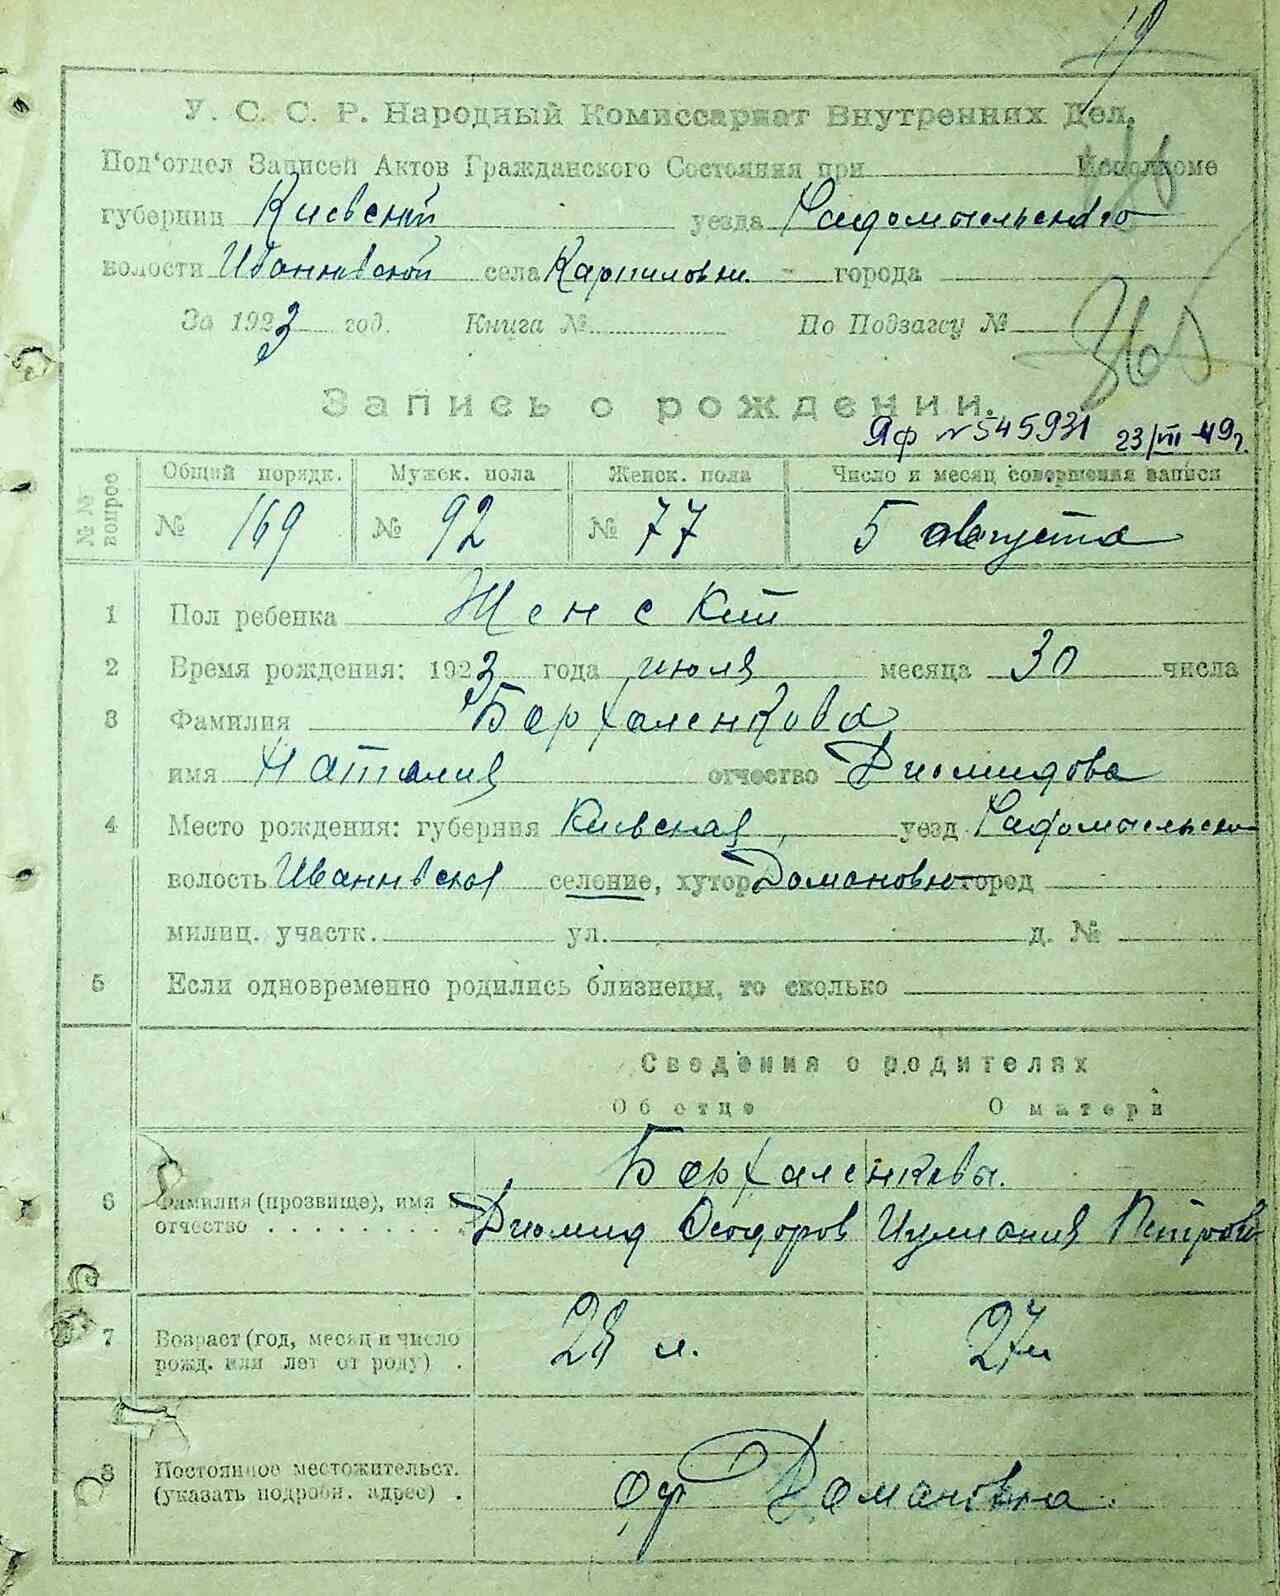 19
У. С. С. Р. Народный Комиссариат Внутренних Дел.
Под'отдел Записей Актов Гражданского Состояния при Исполкоме
губернии Киевской уезда Радомысльского
волости Иванковской села Карпиловки. города
За 1923 год. Книга № По Подзагсу №
365
Запись о рождении.
ЯФ № 545931 23/VII-49г.
№№ вопрос Общий порядк. Мужск. пола Женск. пола Число и месяц совершения записи
№ 169 № 92 № 77 5 августа
1 Пол ребенка Женский
2 Время рождения: 1923 года июля месяца 30 числа
3 Фамилия Бархаленкова
имя Наталия отчество Диомидова
4 Место рождения: губерния Киевская, уезд Радомысльск
волость Иванквская селение, хутор Домановка город
милиц. участк. ул. д. №
5 Если одновременно родились близнецы, то сколько
Сведения о родителях
Об отце О матери
Бархаленковы.
6 Фамилия (прозвище), имя и
отчество . . . . . . . . . Диомид Феодоров Иулиания Петрова
7 Возраст (год, месяц и число
рожд. или лет от роду) . 28 л. 27 л
8 Постоянное местожительст.
(указать подробн. адрес) . Домановка.